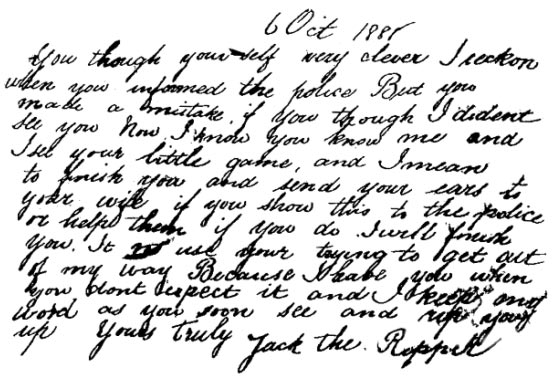 6 Oct 1888
You though your-self very clever I reckon
when you informed the police But you
made a mistake if you though I dident
see you Now I know you know me and
I see your little game, and I mean
to finish you and send your ears to
your wife if you show this to the police
or help them if you do I will finish
you. It no use your trying to get out
of my way Because I have you when
you dont expect it and I keep my
word as you soon see and rip you
up Yours truly Jack the Ripper